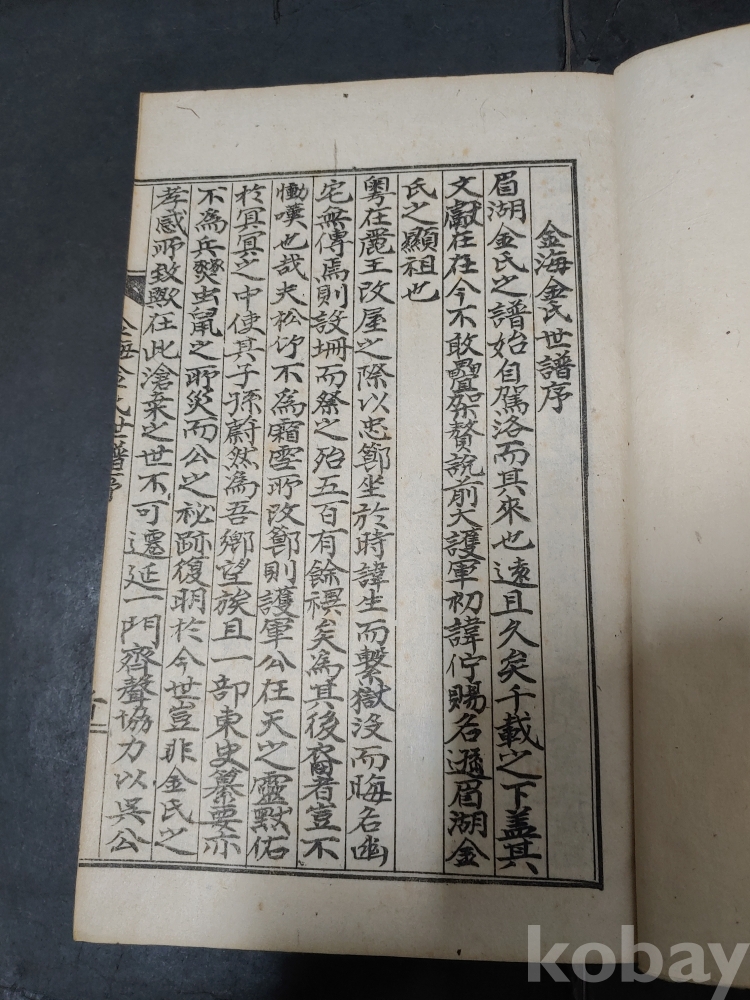 金海金氏世譜序
眉湖金氏之譜始自駕洛而其來也遠且久矣千載之下盖其
文獻在在今不敢疊架贅說前大護軍初諱佇賜名遜眉湖金
氏之顯祖也
粤在麗王改屋之際以忠鄭坐於時諱生而繫獄沒而晦名幽
宅無傳焉則設壇而祭之殆五百有餘禩矣為其後裔者豈不
慟嘆也哉夫松竹不為霜雪所改鄭則護軍公在天之靈默佑
於冥冥之中使其子孫蔚然為吾鄉望族且一部東史纂要亦
不為兵燹虫鼠之所災而公之祕跡復明於今世豈非金氏之
孝感所致歟在此滄桑之世不可遷延一門齊聲協力以吳公
金海金氏世譜序
kobay